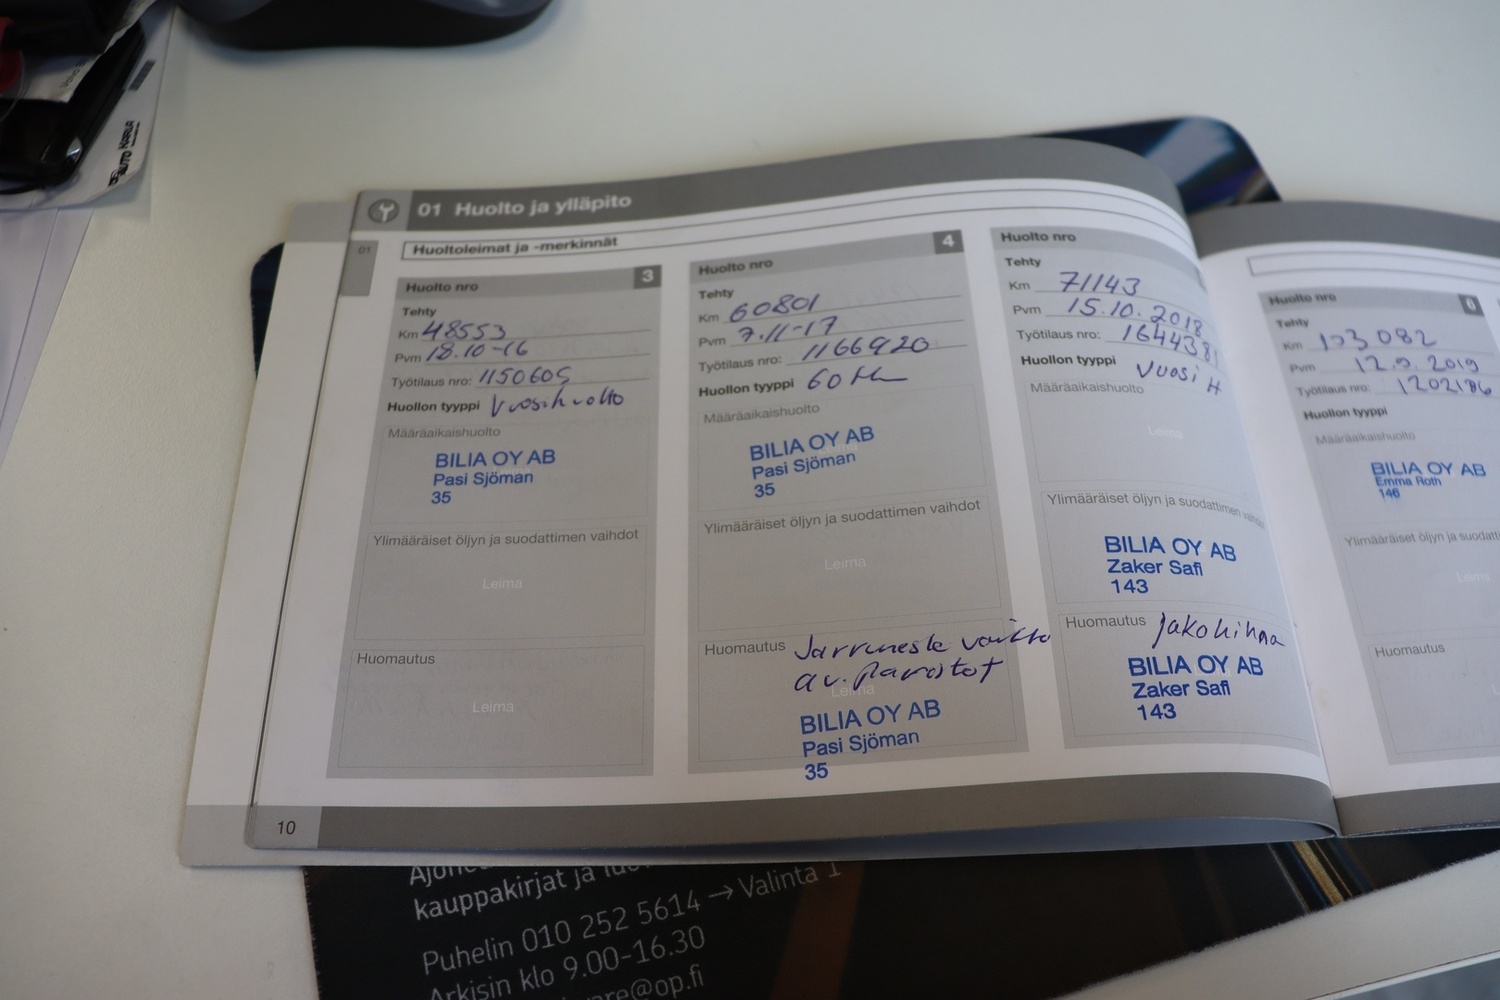 AUTO KARIA
01 Huolto ja ylläpito
01
Huoltoleimat ja -merkinnät
Huolto nro 3
Tehty
Km 48553
Pvm 18.10-16
Työtilaus nro: 1150605
Huollon tyyppi Vuosihuolto
Määräaikaishuolto
BILIA OY AB
Pasi Sjöman
35
Ylimääräiset öljyn ja suodattimen vaihdot
Leima
Huomautus
Leima
Huolto nro 4
Tehty
Km 60801
Pvm 7.11-17
Työtilaus nro: 1166920
Huollon tyyppi 60
Määräaikaishuolto
BILIA OY AB
Pasi Sjöman
35
Ylimääräiset öljyn ja suodattimen vaihdot
Leima
Huomautus Jarruneste vaihto
av. paristot
Leima
BILIA OY AB
Pasi Sjöman
35
Huolto nro
Tehty
Km 71143
Pvm 15.10.2018
Työtilaus nro: 1644381
Huollon tyyppi Vuosi H
Määräaikaishuolto
Leima
Ylimääräiset öljyn ja suodattimen vaihdot
BILIA OY AB
Zaker Safi
143
Huomautus Jakohihna
BILIA OY AB
Zaker Safi
143
Huolto nro 6
Tehty
Km 103 082
Pvm 12.9.2019
Työtilaus nro: 1202186
Huollon tyyppi
Määräaikaishuolto
BILIA OY AB
Emma Roth
146
Ylimääräiset öljyn ja suodatt
Leima
Huomautus
10
kauppakirjat ja
Puhelin 010 252 5614 → Valinta 1
Arkisin klo 9.00-16.30
@op.fi